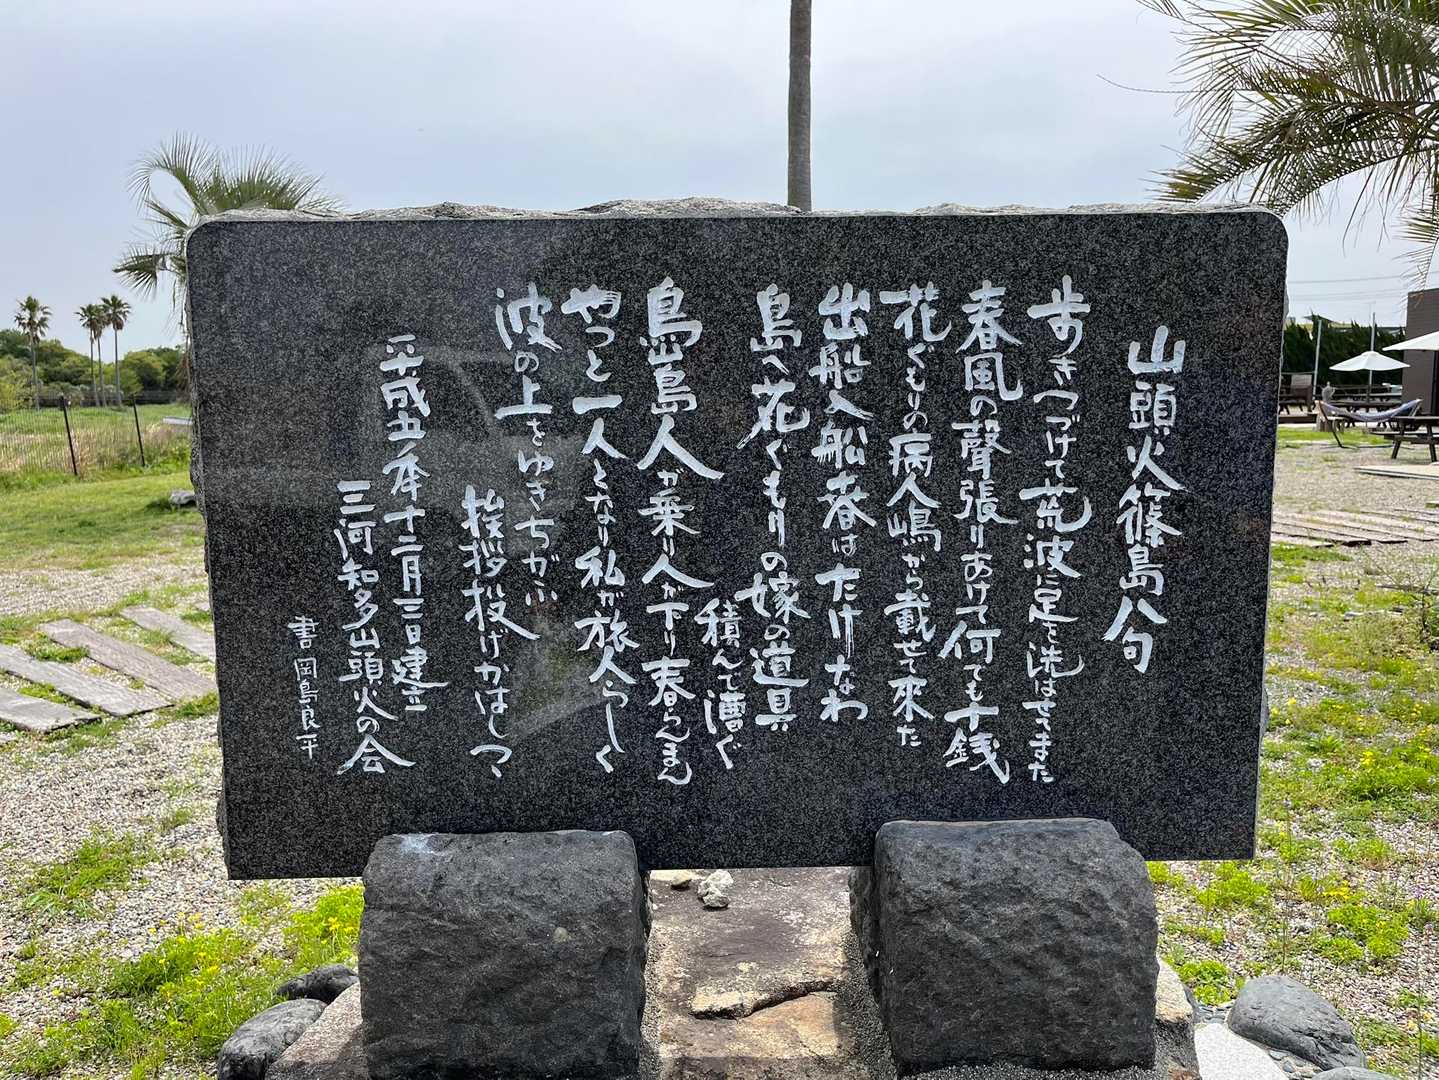 山頭火篠島八句
歩きつづけて荒波に足を洗はせてきた
春風の聲張りあげて何でも十銭
花ぐもりの病人嶋から載せて來た
出船入船春はたけなわ
島へ花ぐもりの嫁の道具
積んで漕ぐ
島島人が乗り人が下り春らんまん
やつと一人となり私が旅人らしく
波の上をゆきちがふ
挨拶投げかはしつゝ
平成五年十二月三日建立
三河知多山頭火の会
書 岡島良平